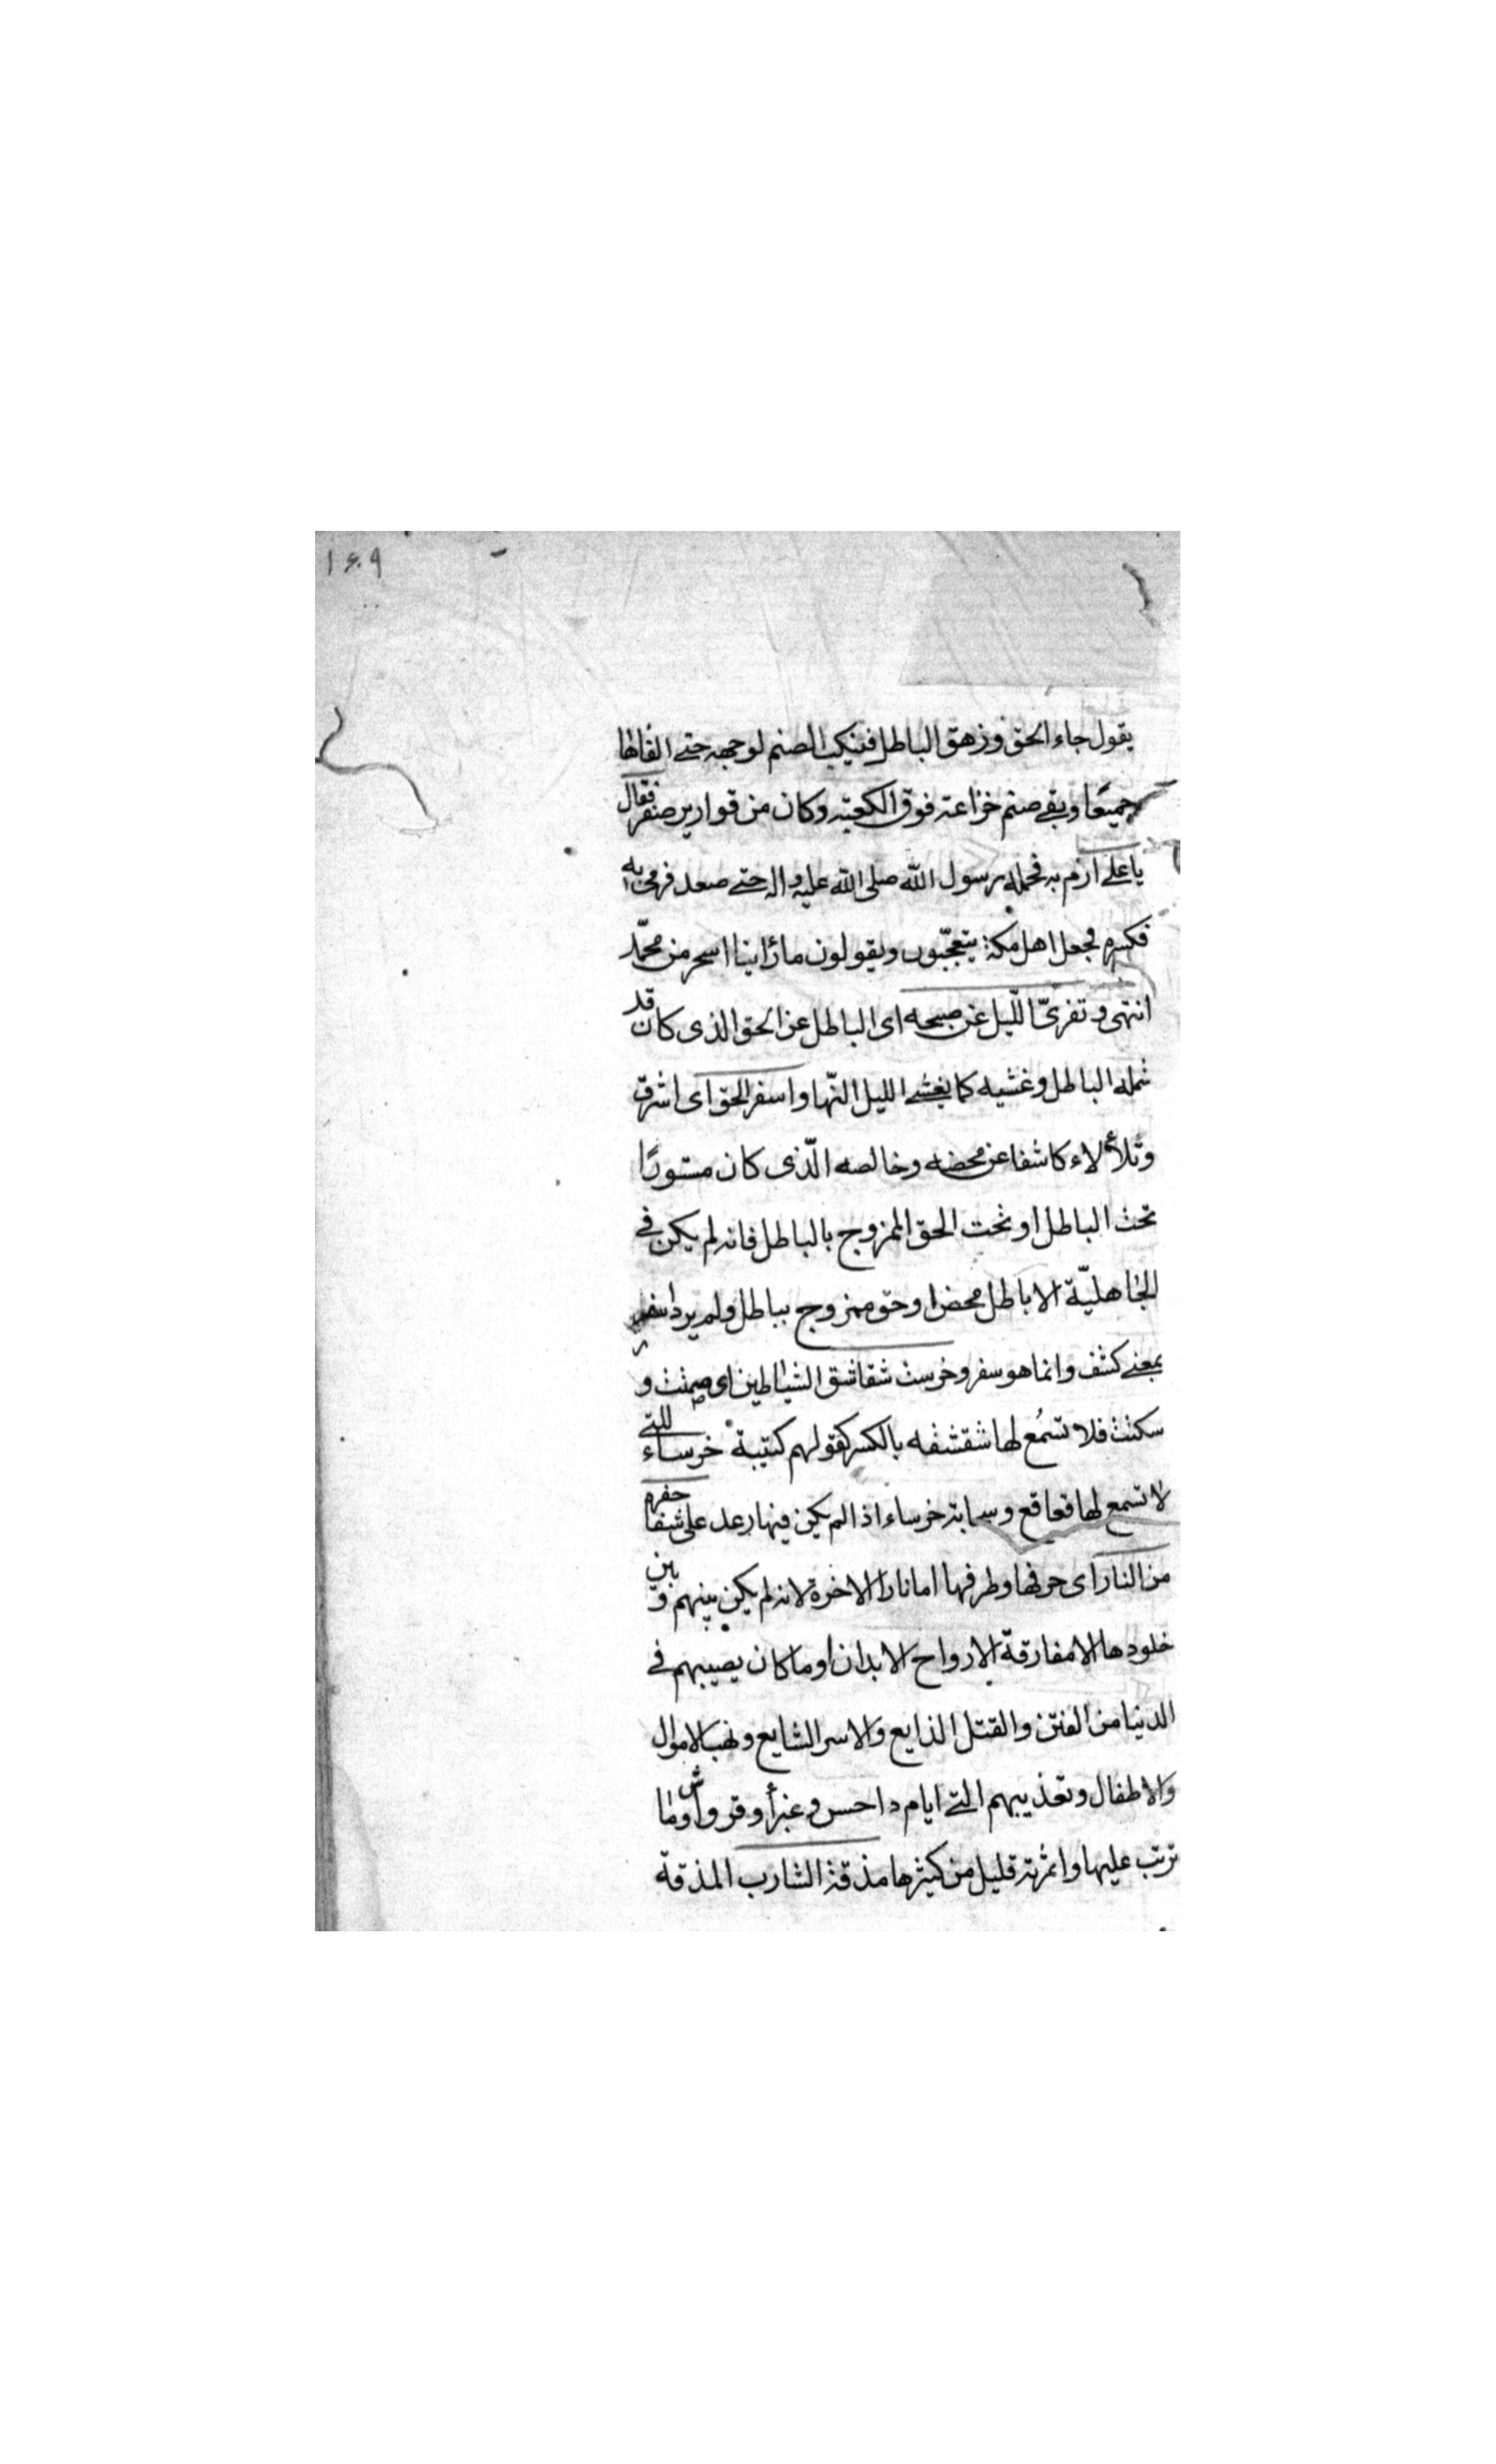 ۱۶۹
يقول جاء الحق وزهق الباطل فينكب الصنم لوجهه حتى القاها
جميعا وبقى صنم خزاعة فوق الكعبة وكان من قوارير صفر فقال
يا على ارم به فحمله رسول الله صلى الله عليه واله حتى صعد فرمى به
فكسره فجعل اهل مكة يتعجّبون ويقولون ما رأينا اسحر من محمّد
انتهى وتفرّى اللّيل عن صبحه اى الباطل عن الحق الذى كان قد
شمله الباطل وغشيه كما يغشى الليل النّهار واسفر الحق اى اشرق
وتلألاء كاشفا عن محضه وخالصه الّذى كان مستورًا
تحت الباطل او تحت الحق الممزوج بالباطل فانه لم يكن فى
الجاهليّة الا باطل محض او حق ممزوج بباطل ولم يرد اسفر
بمعنى كشف وانما هو سفر وخرست شقاشق الشياطين اى صمتت و
سكتت فلا تسمُع لها شقشقه بالكسر كقولهم كتيبة خرساء للتى
لا تسمع لها قعاقع وسحابة خرساء اذا لم يكن فيها رعد على شفا حفره
من النار اى حرفها وطرفها اما نار الاخرة لانه لم يكن بينهم و بين
خلودها الا مفارقة الارواح الابدان او ما كان يصيبهم فى
الدنيا من الفتن والقتل الذايع والاسر الشايع ونهب الاموال
والاطفال وتعذيبهم التى ايام داحس وغبرأ وقرواش وما
ترتب عليها واثمرته قليل من كثيرها مذقة الشارب المذقة